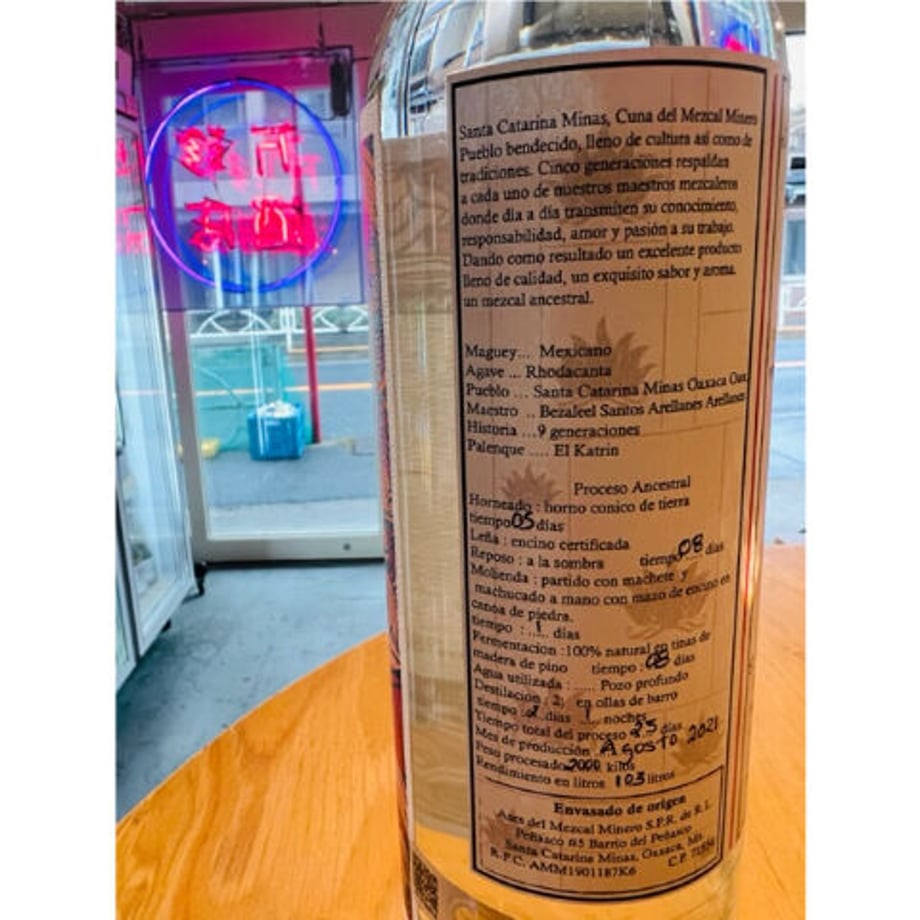 Santa Catarina Minas, Cuna del Mezcal Minero
Pueblo bendecido, lleno de cultura así como de
tradiciones. Cinco generaciones respaldan
a cada uno de nuestros maestros mezcaleros
donde día a día transmiten su conocimiento,
responsabilidad, amor y pasión a su trabajo.
Dando como resultado un excelente producto
lleno de calidad, un exquisito sabor y aroma.
un mezcal ancestral.
Maguey... Mexicano
Agave ... Rhodacanta
Pueblo ... Santa Catarina Minas Oaxaca Oax
Maestro .. Bezaleel Santos Arellanes Arellanes
Historia ...9 generaciones
Palenque .... El Katrin
Proceso Ancestral
Horneado : horno conico de tierra
tiempo 05 días
Leña : encino certificada
Reposo : a la sombra tiempo 08 días
Molienda : partido con machete y
machucado a mano con mazo de encino en
canoa de piedra.
tiempo : 1 días
Fermentacion :100% natural en tinas de
madera de pino tiempo : 08 días
Agua utilizada : .... Pozo profundo
Destilación : 2, en ollas de barro
tiempo : 2 días 1 noches
Tiempo total del proceso 25 días
Mes de producción Agosto 2021
Peso procesado 2000 kilos
Rendimiento en litros 103 litros
Envasado de origen
Ases del Mezcal Minero S.P.R. de R. L.
Peñasco #5 Barrio del Peñasco
Santa Catarina Minas, Oaxaca, Mx.
R.F.C. AMM1901187K6 C.P.